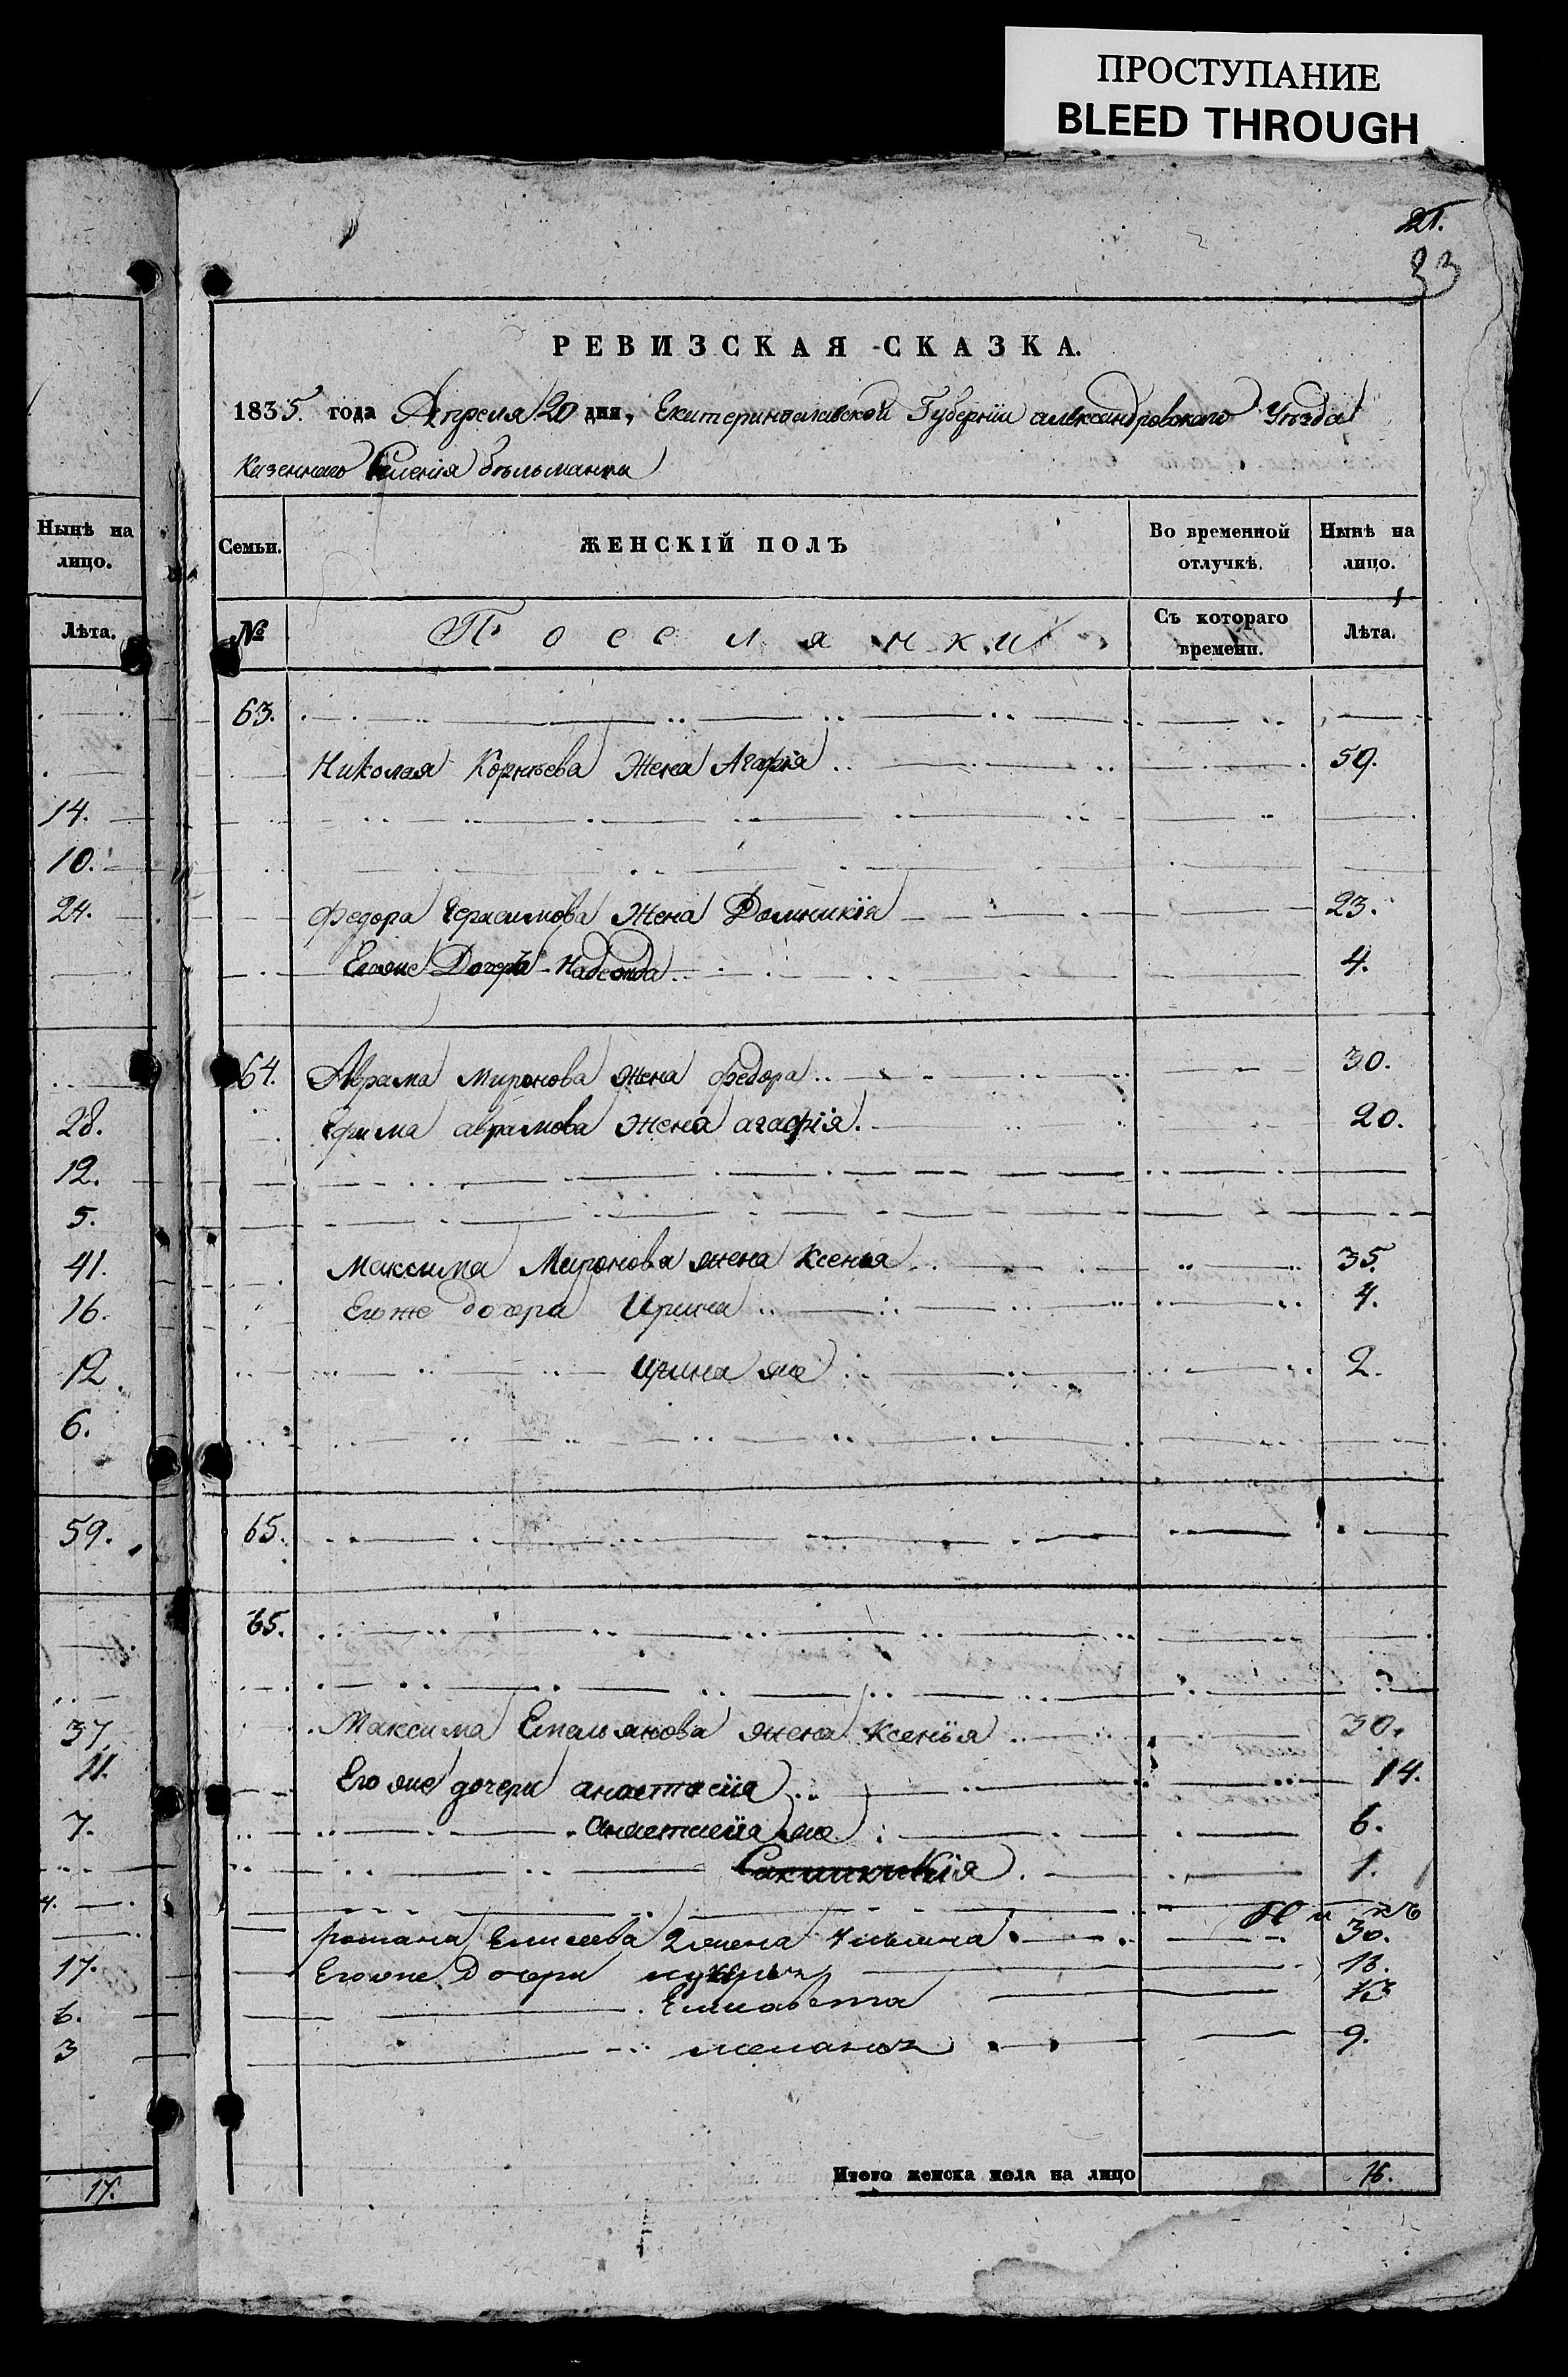 ПРОСТУПАНИЕ
BLEED THROUGH
21.
33
РЕВИЗСКАЯ СКАЗКА.
1835. года Апреля 20 дня, Екатеринославской Губернїи александровского Уезда
Казенного Селенїя бѣльманки
Нынѣ на лицо.
Лѣта.
14.
10.
24.
28.
12.
5.
41.
16.
12.
6.
59.
37.
11.
7.
4.
17.
6.
3
17.
Семьи. ЖЕНСКІЙ ПОЛЪ Во временной отлучкѣ. Нынѣ на лицо.
№ Поселянки Съ котораго времени. Лѣта.
63.
Николая Корнѣева Жена Агафїя 59.
Федора Герасимова Жена Домникїя 23.
Егоже Дочерь Надежда 4.
64. Аврама Миронова жена федора 30.
Ефима аврамова Жена агафїя. 20.
Максима Миронова жена Ксенья 35.
Егоже дочери Ирина 4.
Ирина же 2.
65.
65.
Максима Емельянова жена Ксенїя 30.
Егоже дочери анастасїя 14.
Анастасїя же 6.
1.
романа Елисеева 2 жена 30.
Егоже Дочери 18.
Елисавета 13
меланья 9.
Итого женска пола на лицо 16.